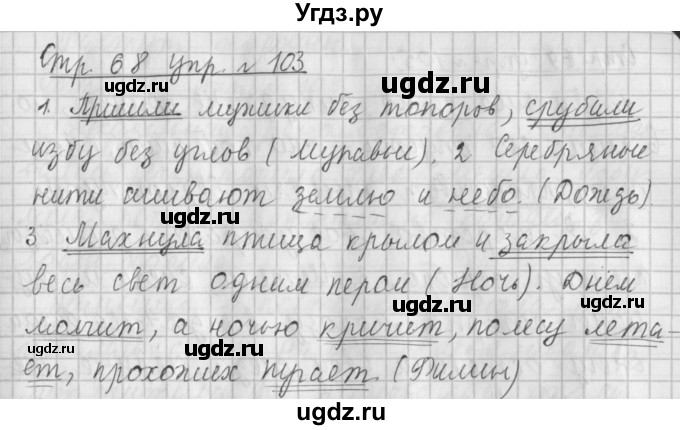 Угдз.ру
Стр. 68 упр. № 103
1. Пришли мужики без топоров, срубили
избу без углов (Муравьи). 2 Серебряные
нити сшивают землю и небо. (Дождь)
3 Махнула птица крылом и закрыла
весь свет одним пером (Ночь). Днём
молчит, а ночью кричит, по лесу лета-
ет, прохожих пугает. (Филин)
ugdz.ru
ugdz.ru
ugdz.ru
ugdz.ru
ugdz.ru
ugdz.ru
ugdz.ru
ugdz.ru
ugdz.ru
ugdz.ru
ugdz.ru